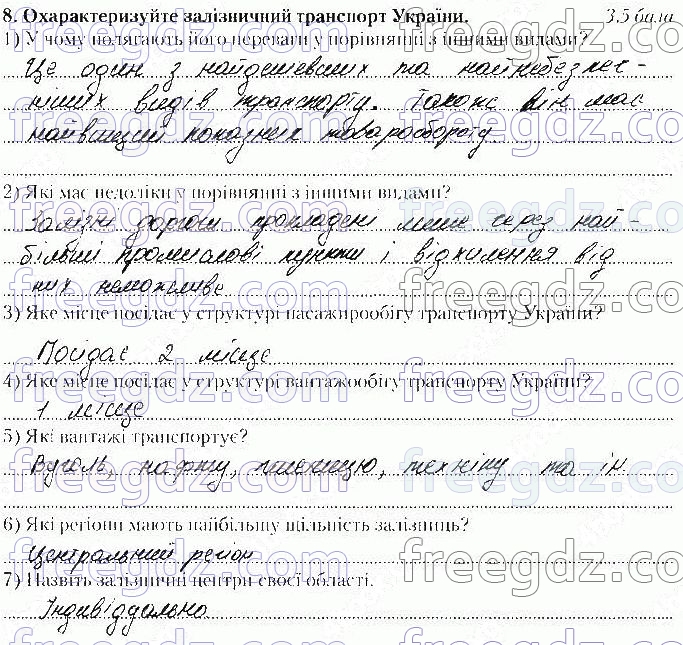 8. Охарактеризуйте залізничний транспорт України. 3,5 бала
1) У чому полягають його переваги у порівнянні з іншими видами?
Це один з найдешевших та найнебезпеч-
ніших видів транспорту. Також він має
найвищий показник товарообороту
2) Які має недоліки у порівнянні з іншими видами?
Залізні дороги прокладені лише через най-
більші промислові пункти і відхилення від
них неможливе
3) Яке місце посідає у структурі пасажирообігу транспорту України?
Посідає 2 місце
4) Яке місце посідає у структурі вантажообігу транспорту України?
1 місце
5) Які вантажі транспортує?
Вугіль, нафту, пшеницю, техніку та ін.
6) Які регіони мають найбільшу щільність залізниць?
Центральний регіон
7) Назвіть залізничні центри своєї області.
Індивідуально
freegdz.com